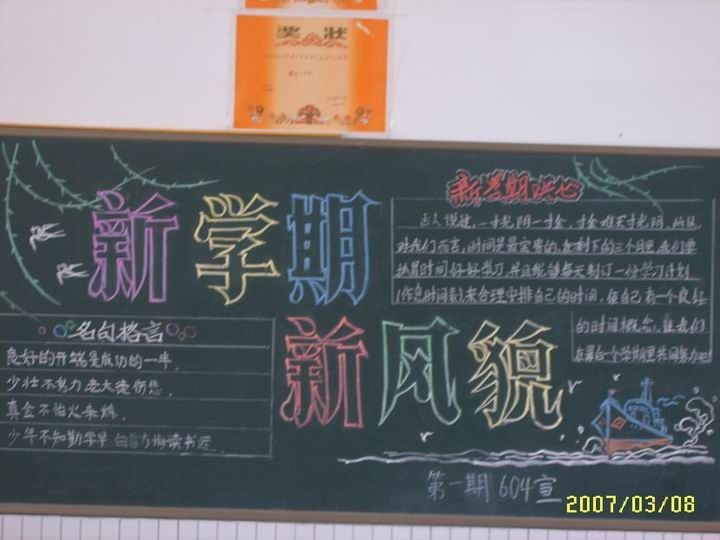 奖状
新学期
新风貌
新学期决心
古人说过,一寸光阴一寸金,寸金难买寸光阴,
对我们而言,时间是最宝贵的,在剩下的三个月里,我们要
抓紧时间好好学习,并且能够每天制订一份学习计划
(作息时间表)来合理安排自己的时间,使自己有一个良好
的时间概念,让我们
在最后一个学期里共同努力吧!
名句格言
良好的开端是成功的一半.
少壮不努力老大徒伤悲.
真金不怕火来炼.
少年不知勤学早,白首方悔读书迟.
第一期 604宣
2007/03/08